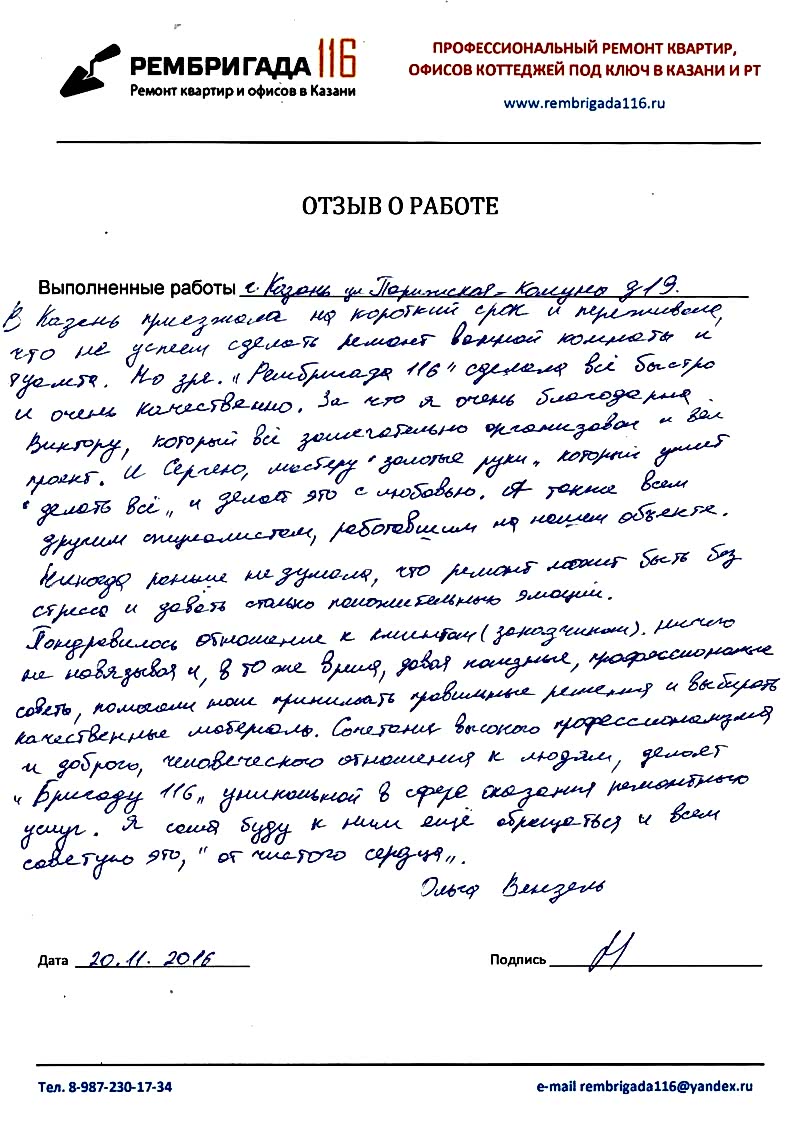 РЕМБРИГАДА 116
Ремонт квартир и офисов в Казани
ПРОФЕССИОНАЛЬНЫЙ РЕМОНТ КВАРТИР,
ОФИСОВ КОТТЕДЖЕЙ ПОД КЛЮЧ В КАЗАНИ И РТ
www.rembrigada116.ru
ОТЗЫВ О РАБОТЕ
Выполненные работы г. Казань ул Парижская-Комуны д 19.
В Казень приезжала на короткий срок и переживала,
что не успеем сделать ремонт ванной комнаты и
туалета. Но зря. „Рембригада 116" сделала всё быстро
и очень качественно. За что я очень благодарна
Виктору, который всё замечательно организовал и вёл
проект. И Сергею, мастеру "золотые руки„ который умеет
"делать всё„ и делает это с любовью. А также всем
другим специалистам, работавшим на нашем объекте.
Никогда раньше не думала, что ремонт может быть без
стресса и давать столько положительных эмоций.
Пондравилось отношение к клиентам (заказчикам). Ничего
не навязывая и, в то же время, давая полезные, профессиональные
советы, помогали нам принимать правильные решения и выбирать
качественные материалы. Сочетание высокого профессионализма
и доброго, человеческого отношения к людям, делает
„Бригаду 116„ уникальной в сфере оказания ремонтных
услуг. Я сама буду к ним ещё обращаться и всем
советую это, "от чистого сердца„.
Ольга Вензель
Дата 20.11.2016
Подпись
Тел. 8-987-230-17-34
e-mail rembrigada116@yandex.ru